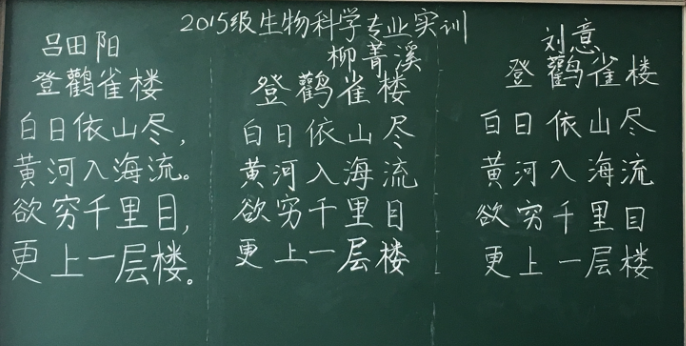 2015级生物科学专业实训
吕田阳
登鹳雀楼
白日依山尽，
黄河入海流。
欲穷千里目，
更上一层楼。
柳菁溪
登鹳雀楼
白日依山尽
黄河入海流
欲穷千里目
更上一层楼
刘意
登鹳雀楼
白日依山尽
黄河入海流
欲穷千里目
更上一层楼